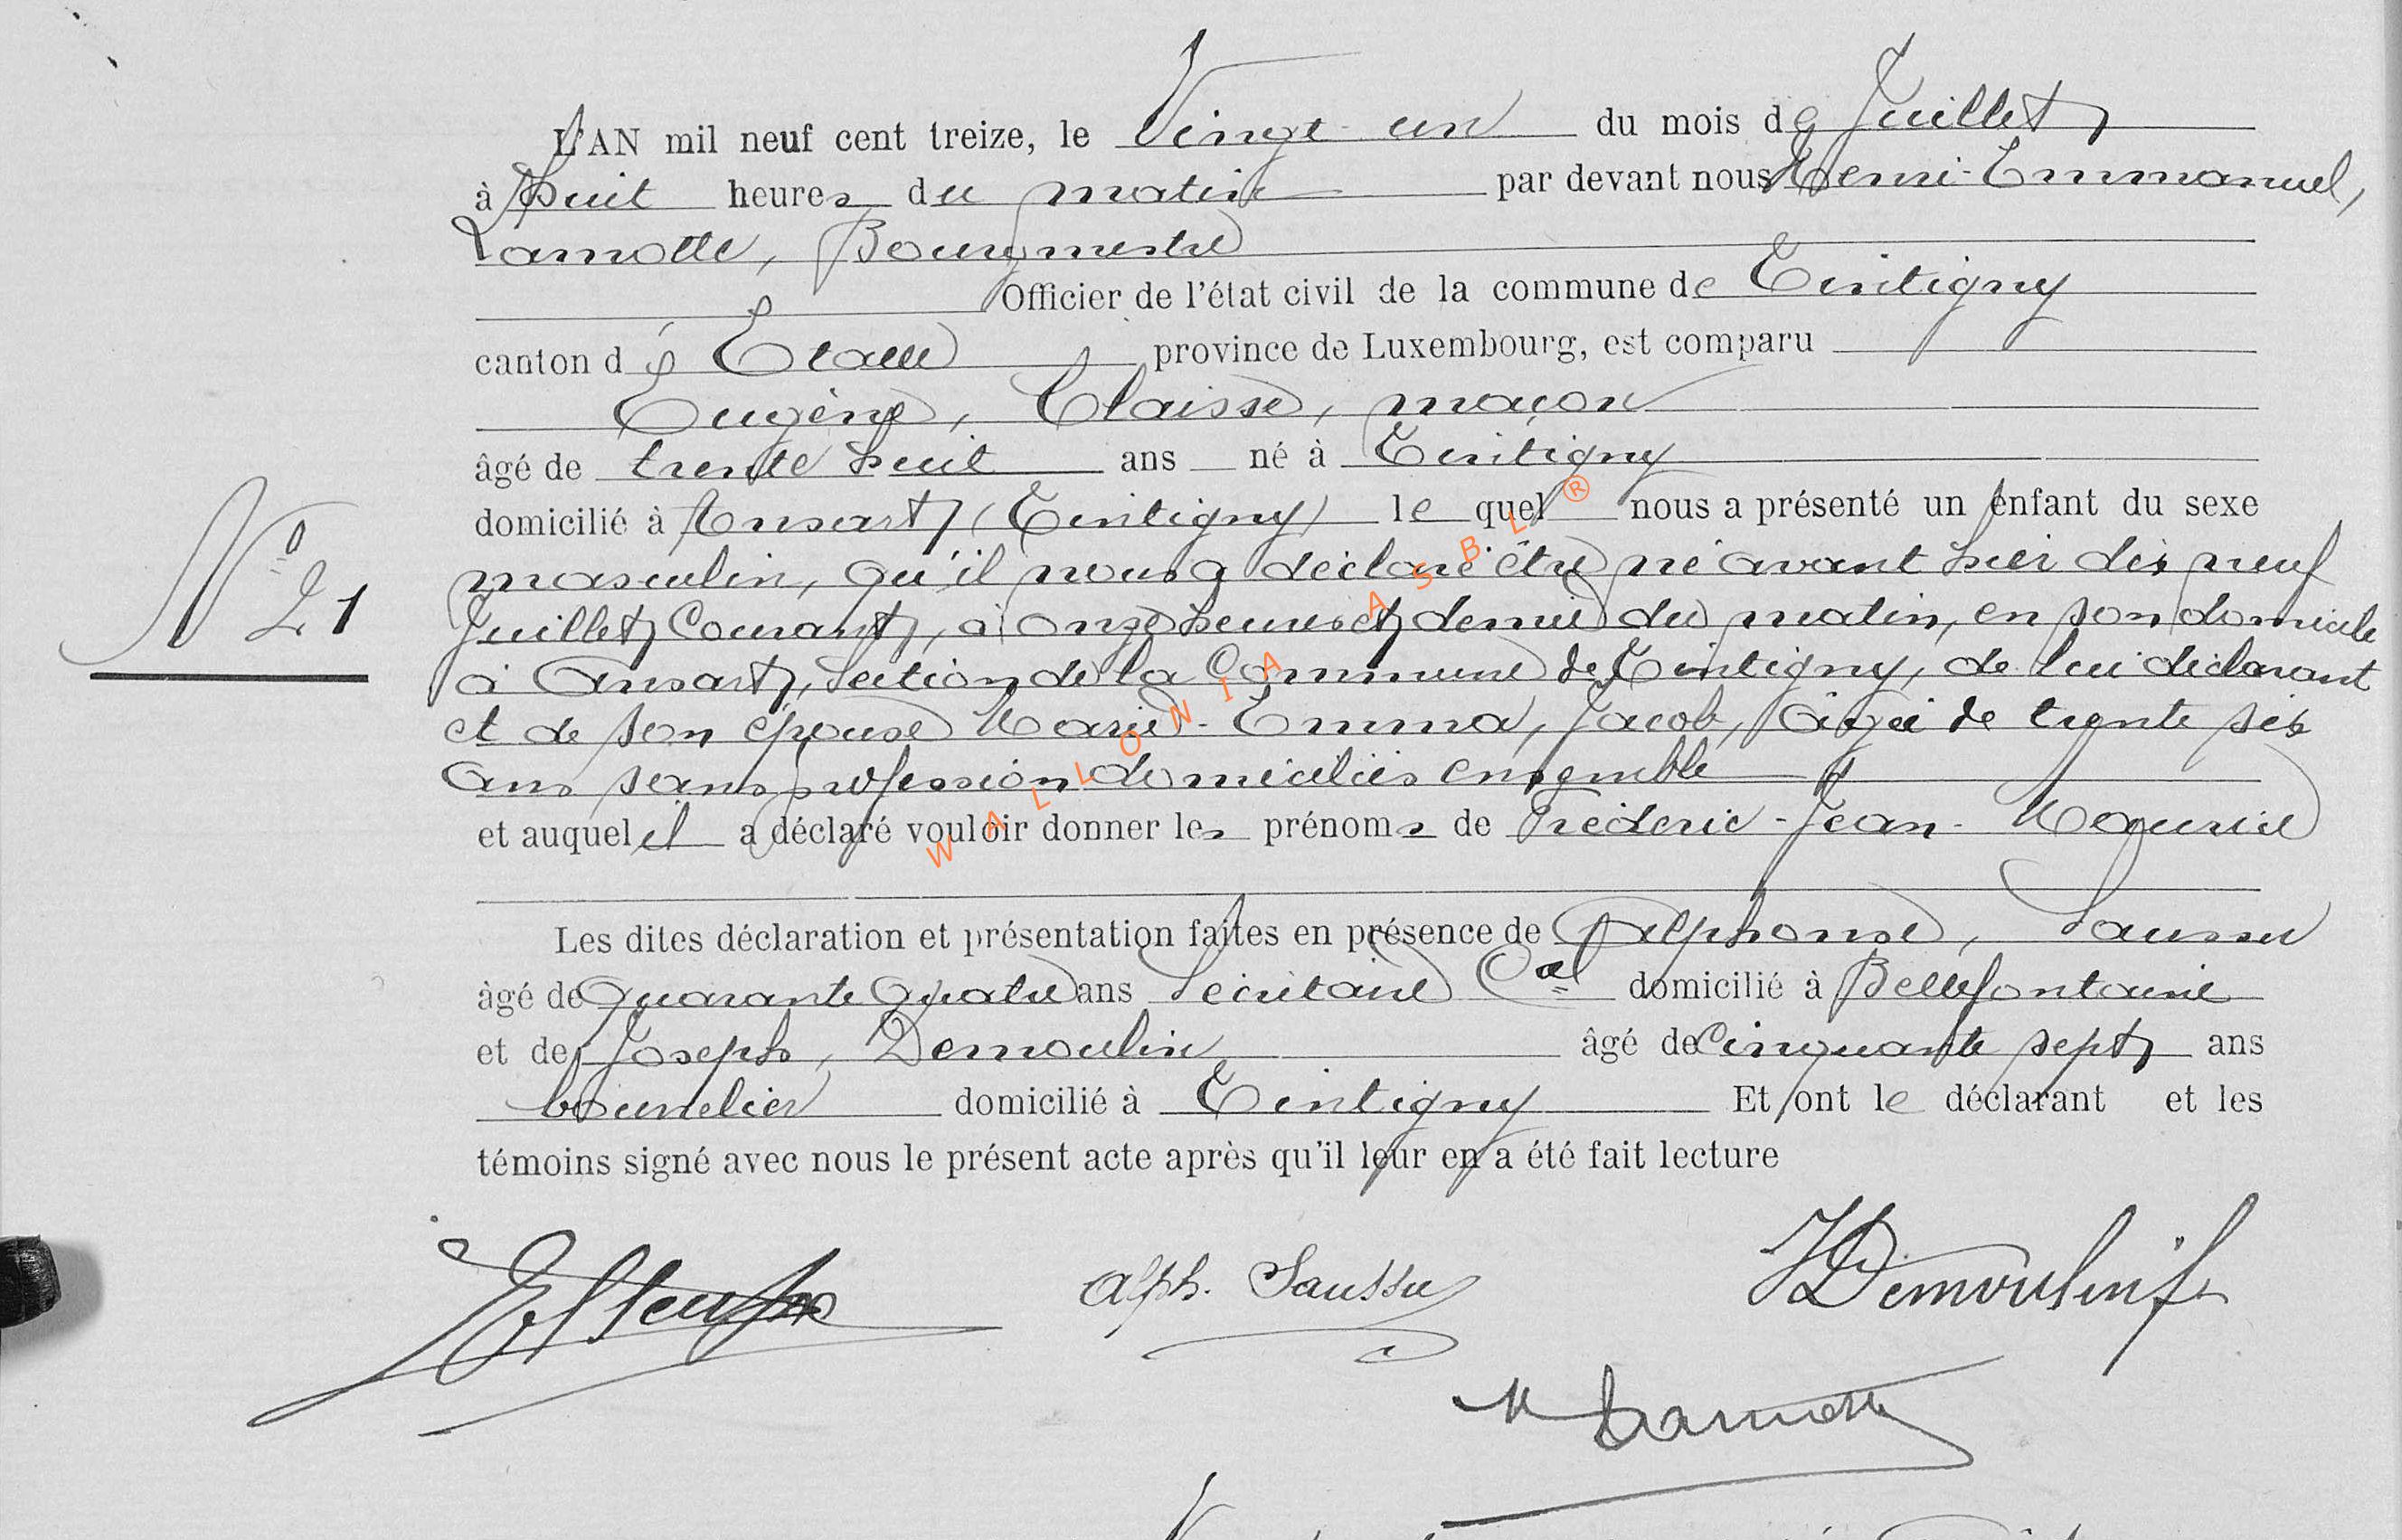 L'AN mil neuf cent treize, le Vingt-un du mois de Juillet
à huit heures du matin par devant nous Henri-Emmanuel,
Lamotte, Bourgmestre
Officier de l'état civil de la commune de Tintigny
canton d'Étalle province de Luxembourg, est comparu
Eugène, Claisse, maçon
âgé de trente huit ans né à Tintigny
domicilié à Ansart (Tintigny) lequel nous a présenté un enfant du sexe
N° 21
masculin, qu'il nous a déclaré être né avant hier dix neuf
Juillet Courant, à onze heures et demie du matin, en son domicile
à Ansart, Section de la Commune de Tintigny, de lui déclarant
et de son épouse Marie-Emma, Jacob, âgée de trente six
ans sans profession domiciliés ensemble
et auquel il a déclaré vouloir donner les prénoms de Fréderic-Jean-Maurice
Les dites déclaration et présentation faites en présence de Alphonse, Saussu
âgé de quarante quatre ans Secrétaire Cal domicilié à Bellefontaine
et de Joseph, Demoulin âgé de Cinquante sept ans
bourrelier domicilié à Tintigny Et ont le déclarant et les
témoins signé avec nous le présent acte après qu'il leur en a été fait lecture
Alph. Saussu
JDemoulin
Lamotte
WALLONIA ASBL ®